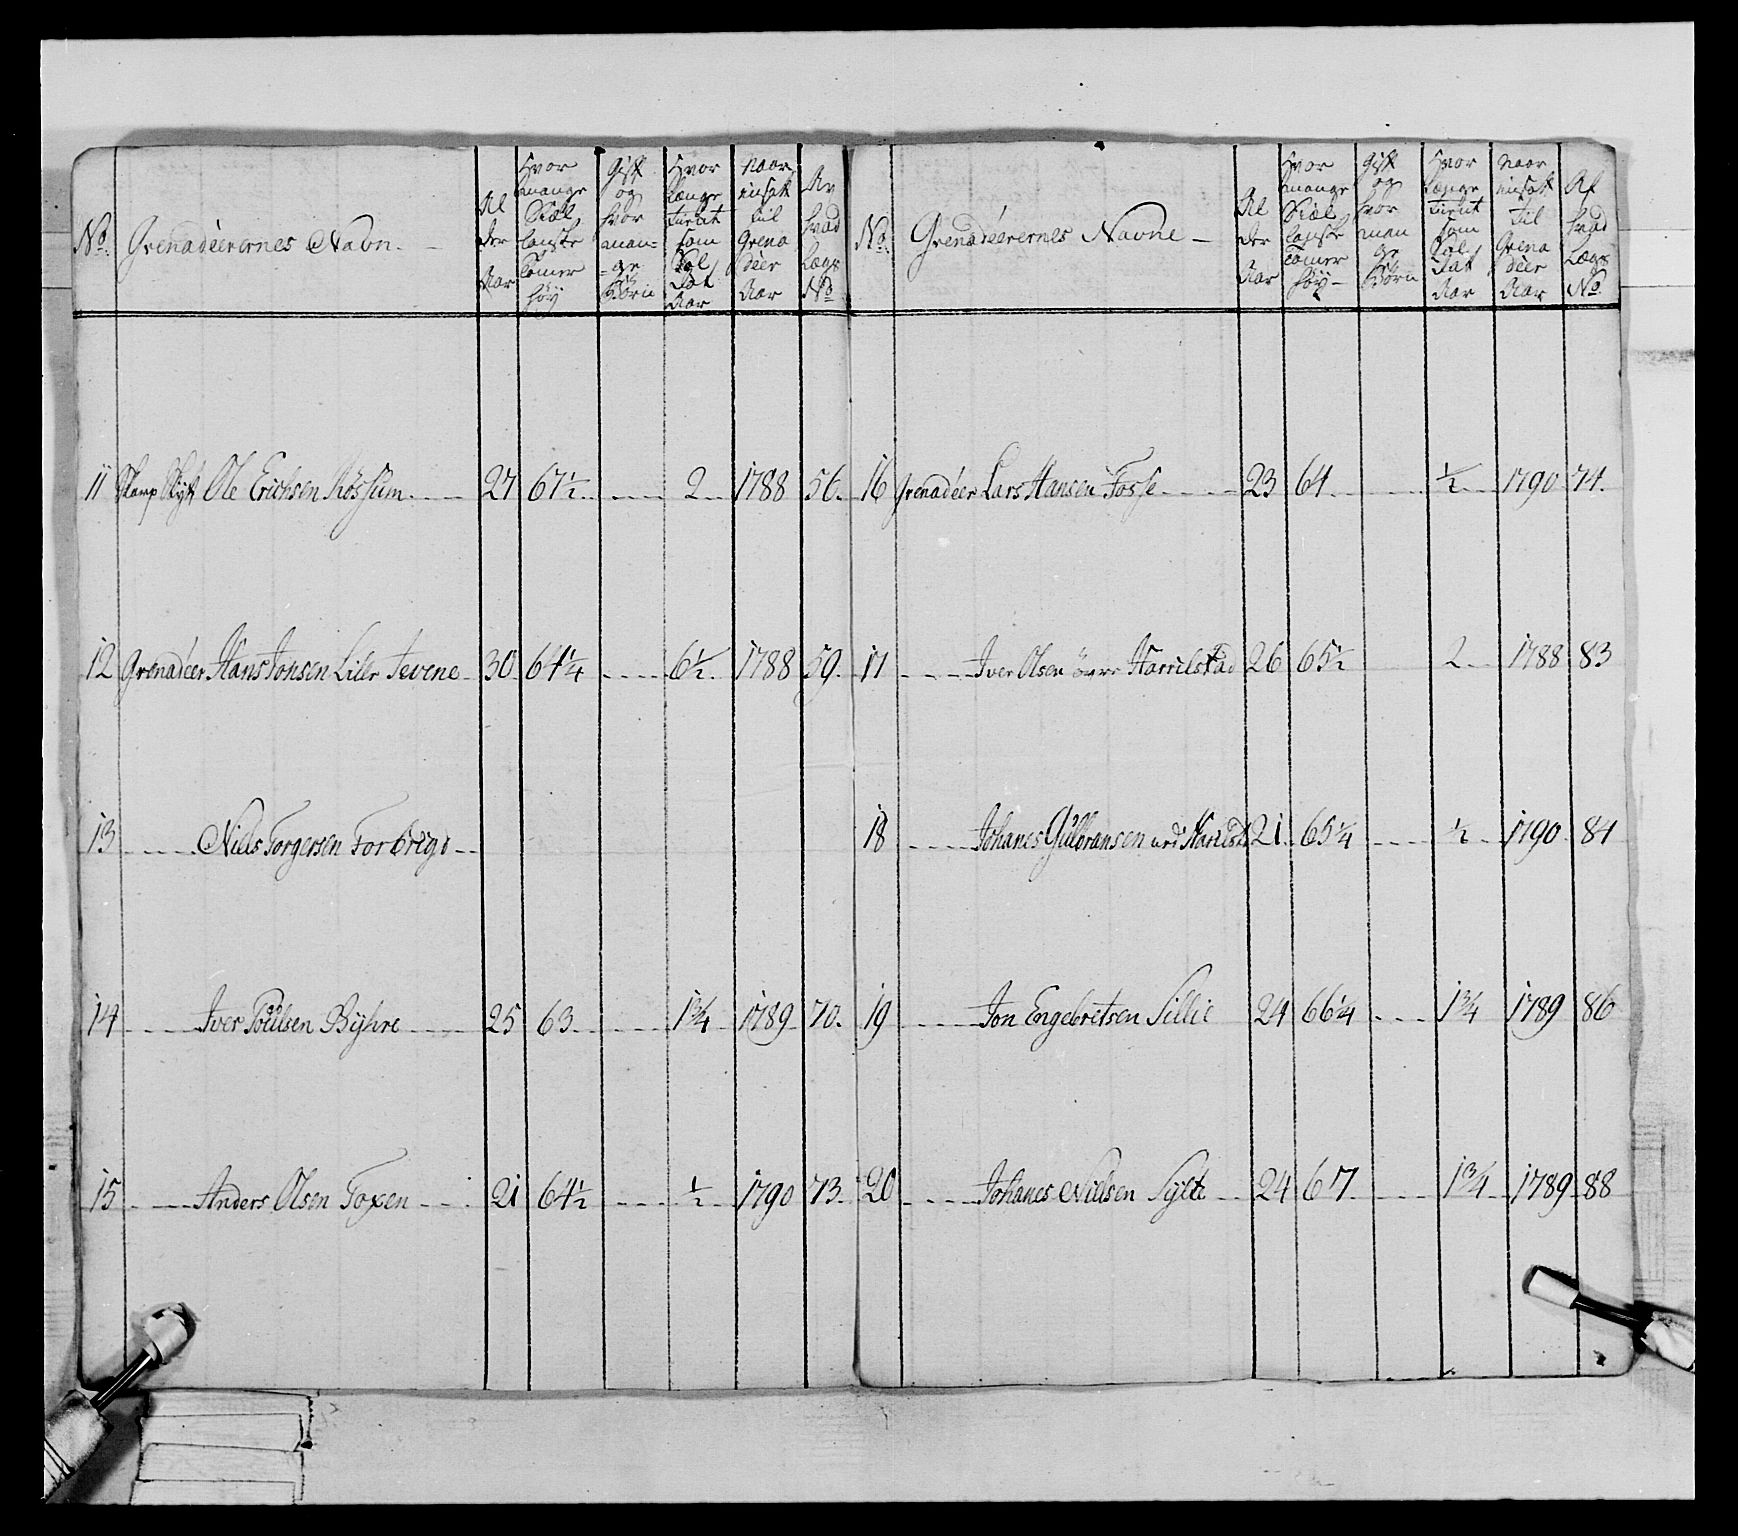 No. Grenadeerernes Navn. Al der Aar Hvor mange Siæl landske Tomer høy Gift og hvor man= =ge Børn Hvor længe tient som Sol dat Aar Naar indsat til Grena deer Aar Av hvad Lægs No
11 Skarp Skyt Ole Erichsen Kössum 27 67½ 2 1788 56.
12 Grenadeer Hans Jonsen Lille Jevene 30 64¼ 6½ 1788 59.
13 Niels Torgersen Forbrigd
14 Iver Poulsen Byhre 25 63 1¾ 1789 70.
15 Anders Olsen Toxen 21 64½ ½ 1790 73.
No. Grenadeerernes Navne Al der Aar Hvor mange Siæl landske Tomer høy Gift og hvor man ge Børn Hvor længe tient som Sol dat Aar Naar indsat til Grena deer Aar Af hvad Lægs No.
16 Grenadeer Lars Hansen Fosse 23 64 ½ 1790 74.
17 Iver Olsen övre Harrilstad 26 65½ 2 1788 83
18 Johanes Gulbransen 21 65¼ ½ 1790 84
19 Jon Engebretsen Sillie 24 66¼ 1¾ 1789 86
20 Johanes Nielsen Sylte 24 67 1¾ 1789 88